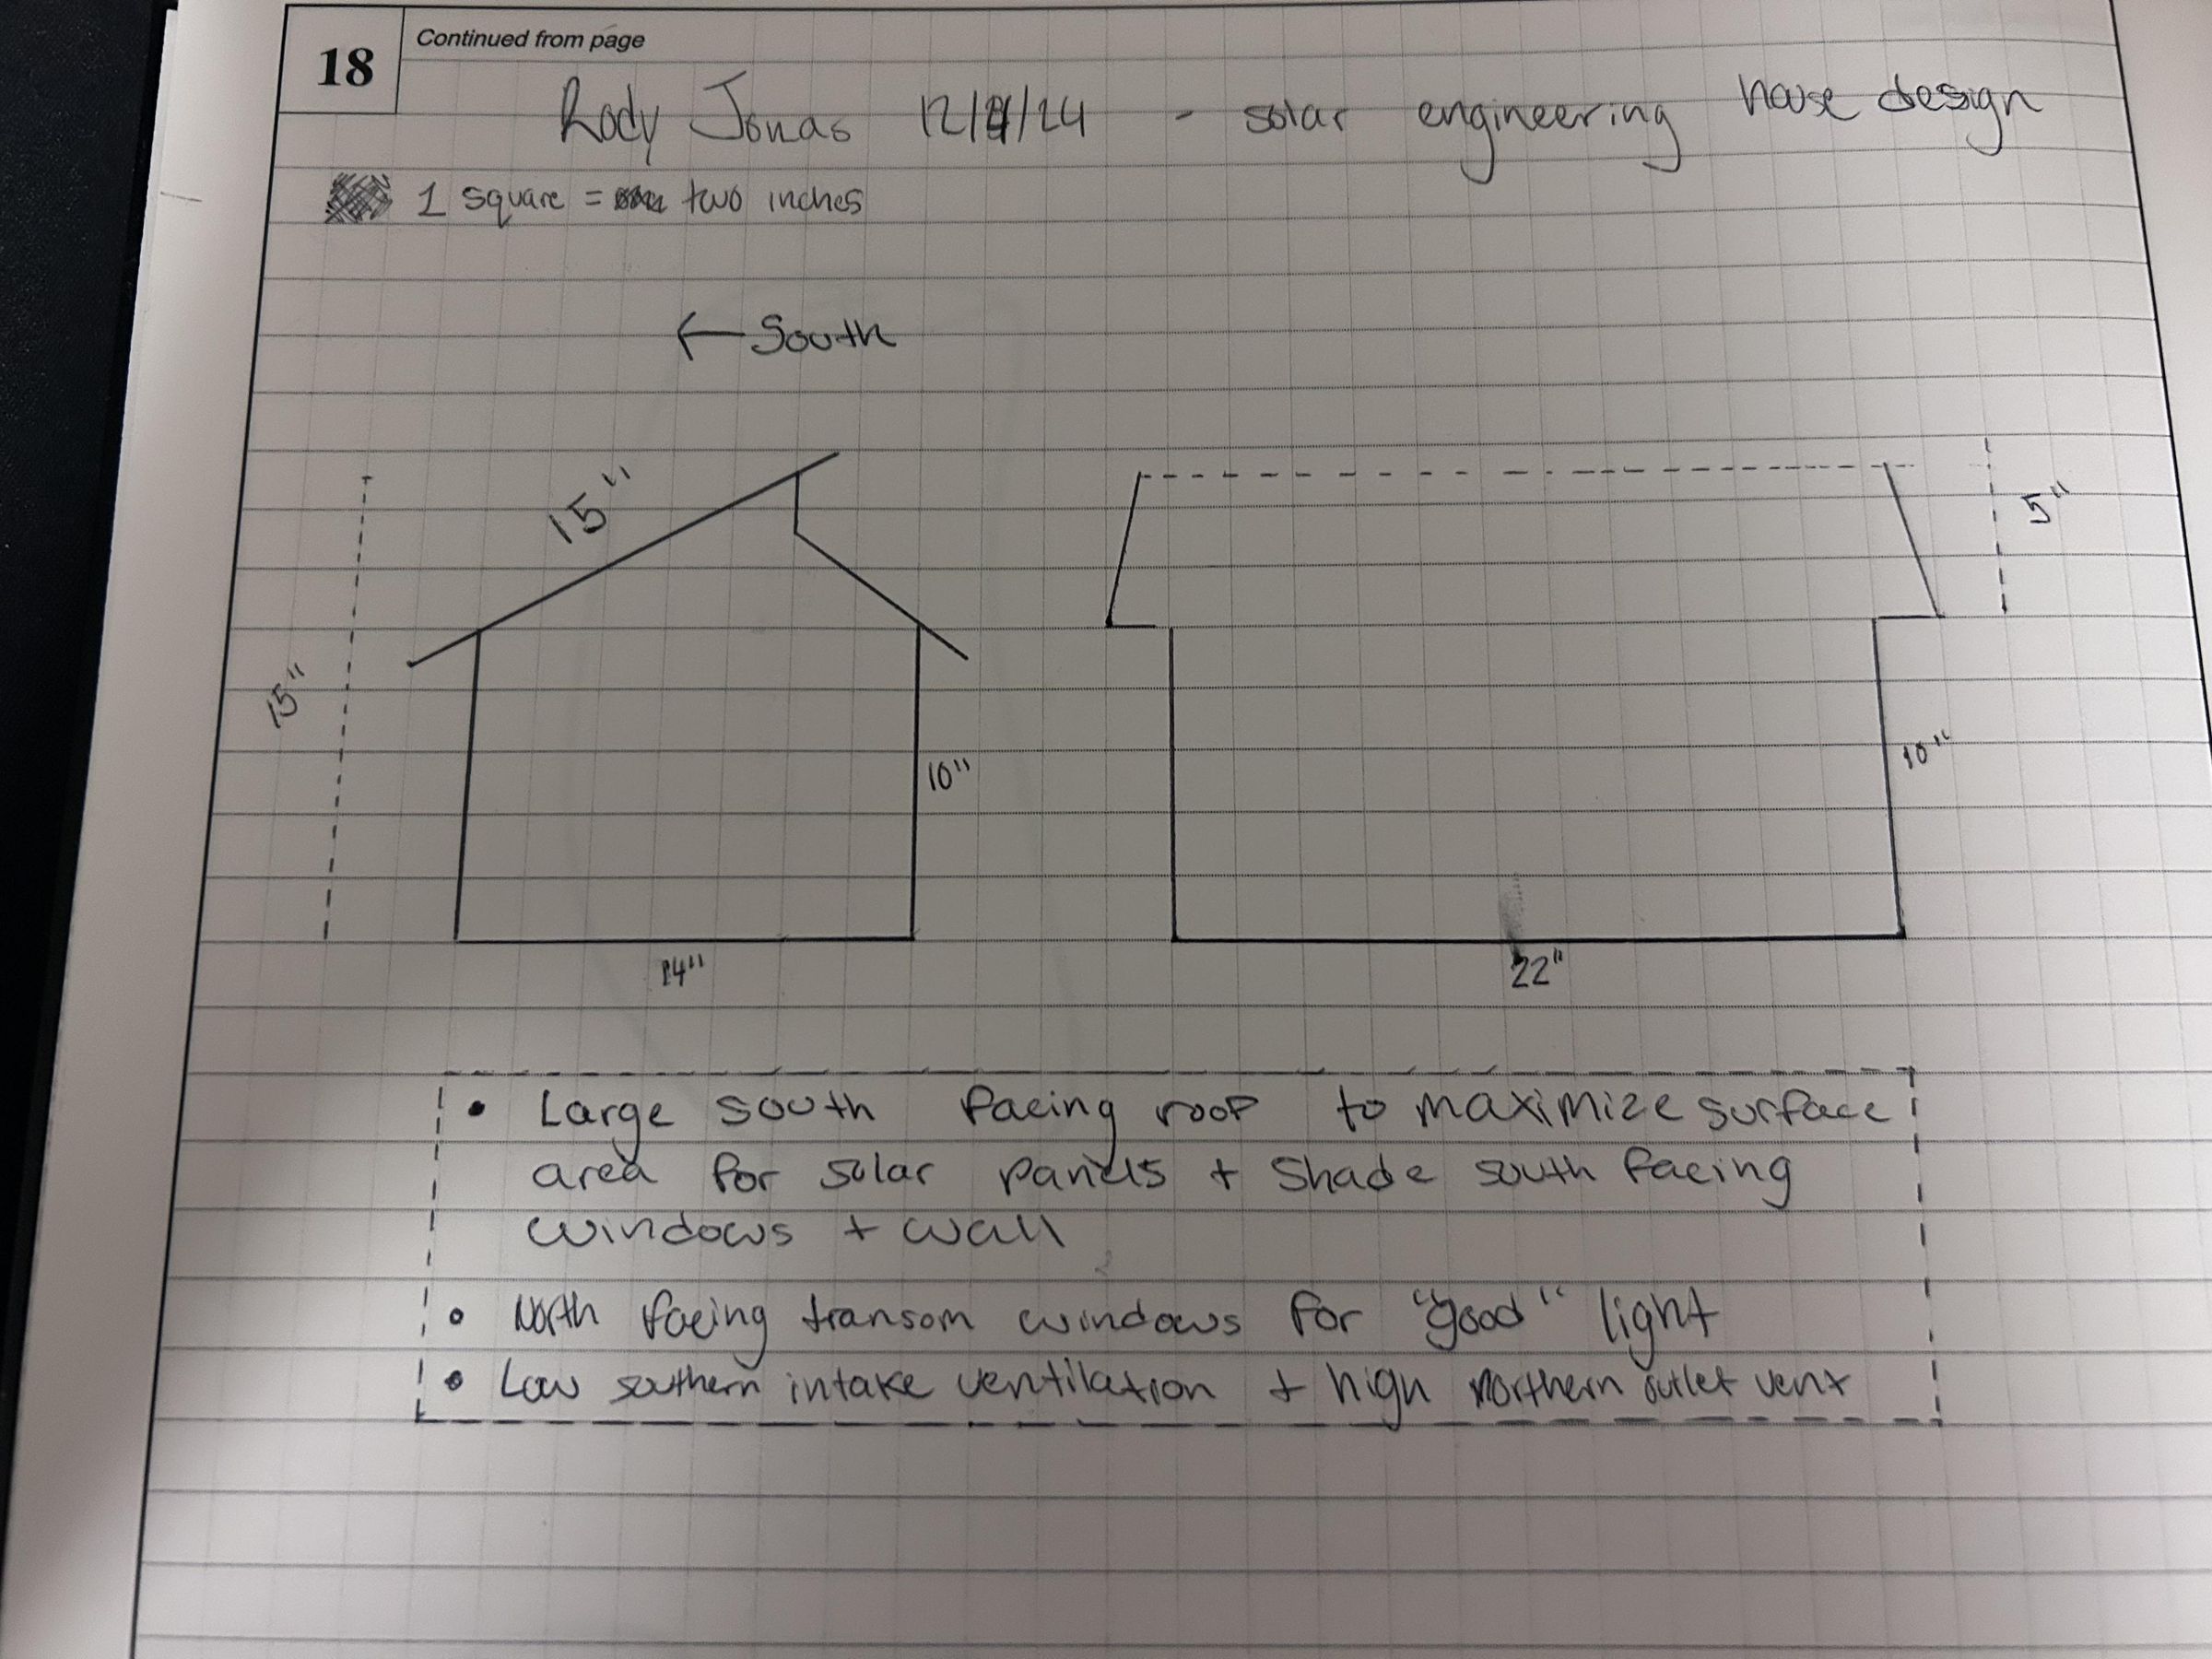 18
Continued from page
Rody Jonas 12/4/24 - solar engineering house design
1 square = two inches
← South
15"
15"
10"
14"
5"
10"
22"
• Large south facing roof to maximize surface
area for solar panels + shade south facing
windows + wall
• North facing transom windows for "good" light
• Low southern intake ventilation + high northern outlet vent